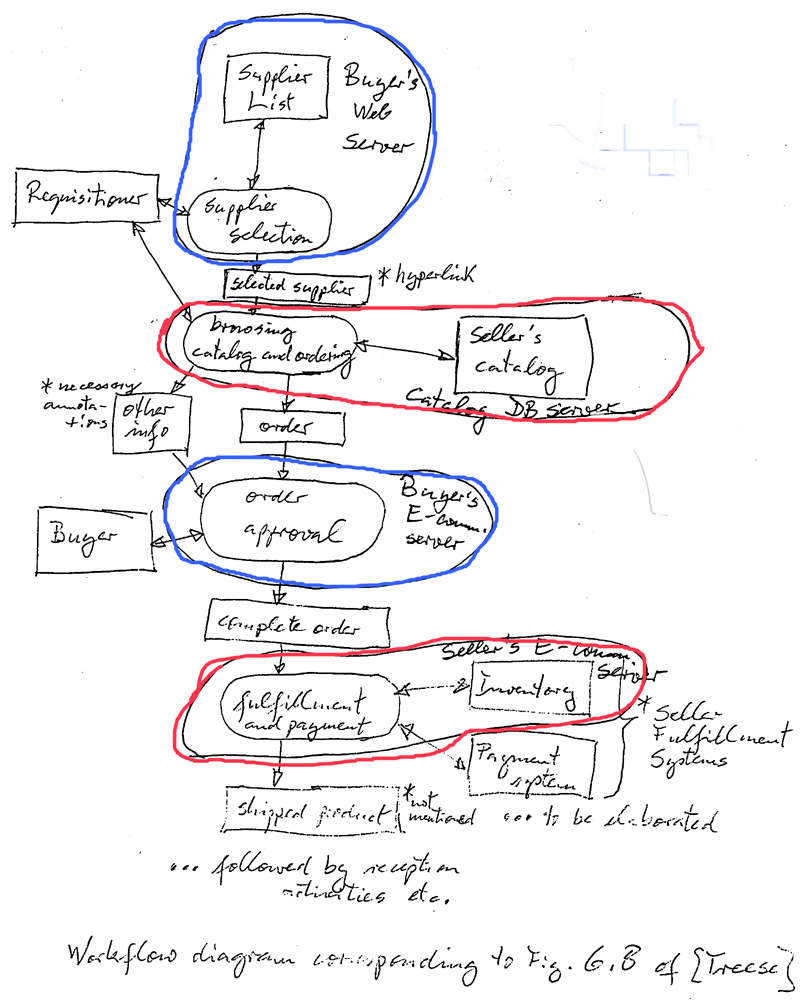 Supplier
List
Buyer's
Web
Server
Requisitioner
supplier
selection
selected supplier
* hyperlink
browsing
catalog and ordering
Seller's
catalog
Catalog DB server
* necessary
annota-
tions
other
info
order
order
approval
Buyer's
E-comm.
server
Buyer
complete order
Seller's E-comm
server
fulfillment
and payment
Inventory
Payment
system
* Seller
Fulfillment
Systems
shipped product
* not
mentioned
... to be elaborated
... followed by reception
activities etc.
Workflow diagram corresponding to Fig. 6.8 of [Treese]